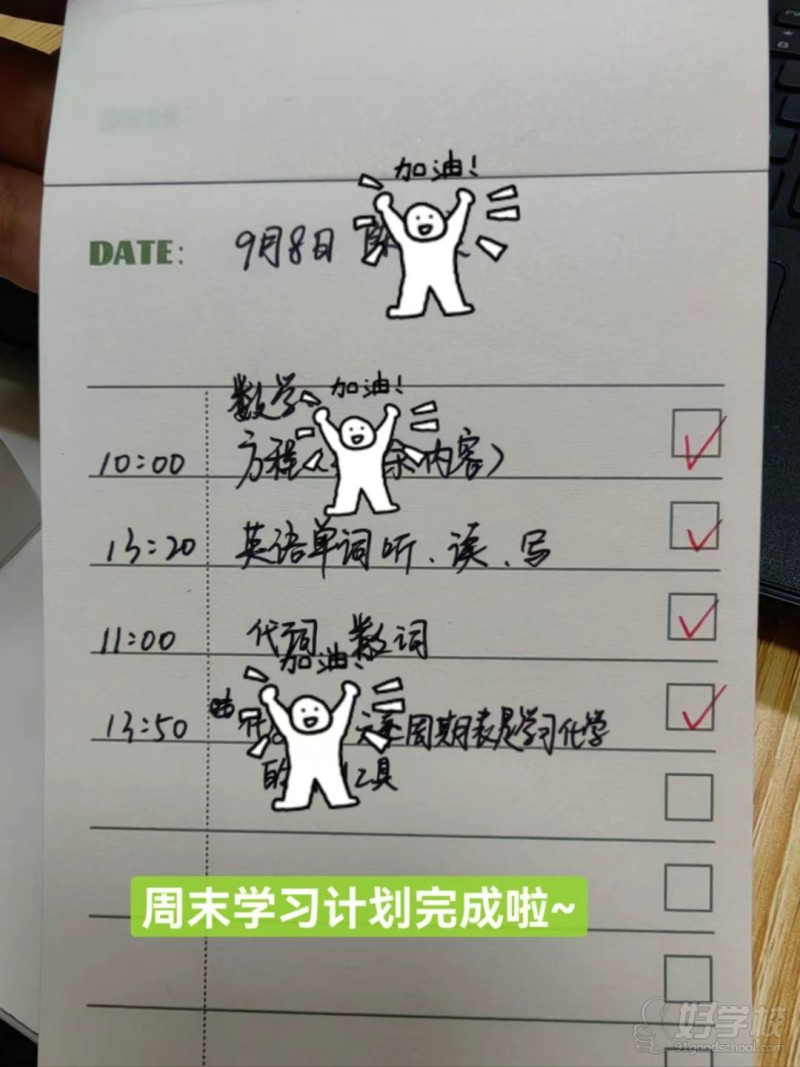 加油!
DATE: 9月8日
数学 加油!
10:00 方程 余内容)
13:20 英语单词听、读、写
11:00 代词、数词
加油!
13:50 元素周期表是学习化学
的 工具
周末学习计划完成啦~
好学校
91goodschool.com